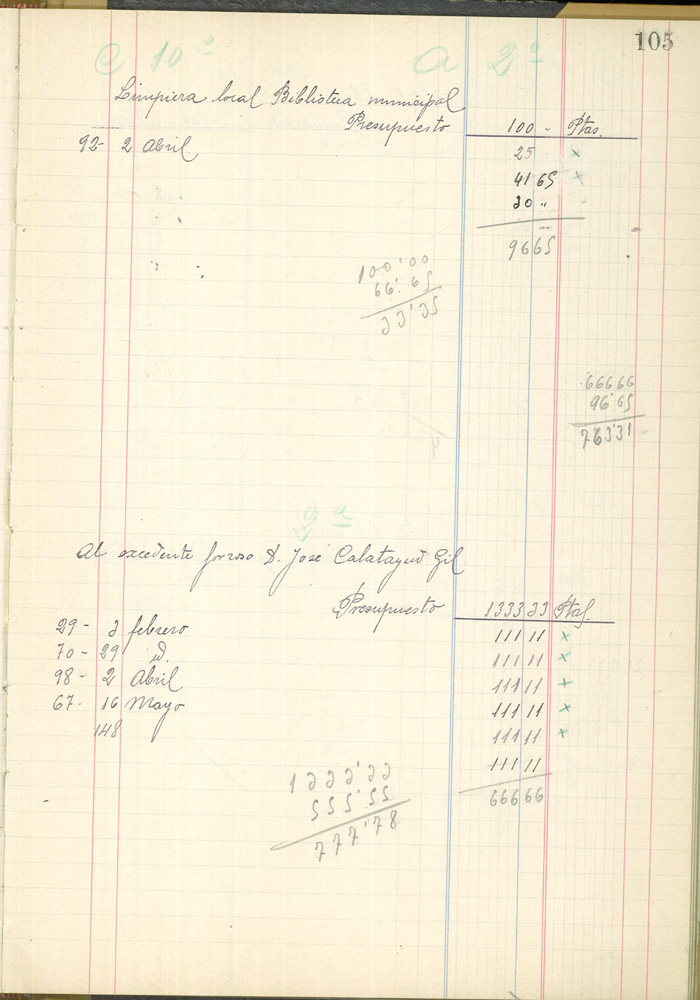 105
C 10º A 2º
Limpieza local Biblioteca municipal
Presupuesto 100 " Ptas.
92 - 2 Abril 25 x
41 65 x
20 "
96 65
100'00
66'65
33'35
666 66
96'65
763'31
2ª
Al excedente forzoso D. José Calatayud Gil
Presupuesto 1333 33 Ptas.
29 - 3 febrero 111 11 x
70 - 29 id. 111 11 x
98 - 2 Abril 111 11 x
67 - 16 Mayo 111 11 x
148 111 11 x
111 11
666 66
1333'33
555'55
777'78